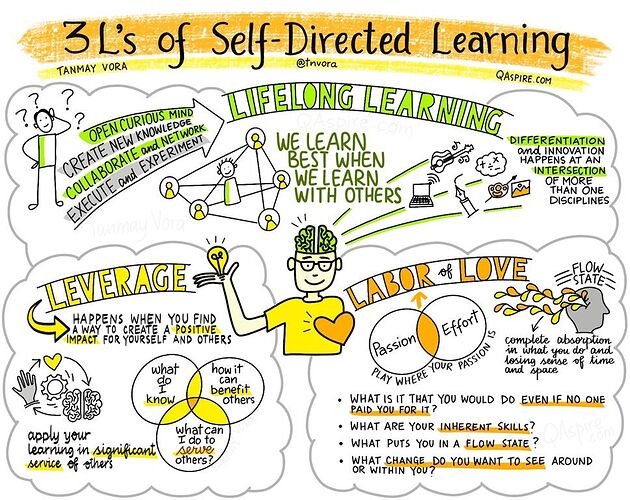 3 L's of Self-Directed Learning
TANMAY VORA
@tnvora
QASPIRE.COM
LIFELONG LEARNING
? ? ? ?
OPEN CURIOUS MIND
CREATE NEW KNOWLEDGE
COLLABORATE and NETWORK
EXECUTE and EXPERIMENT
WE LEARN
BEST WHEN
WE LEARN
WITH OTHERS
DIFFERENTIATION
and INNOVATION
HAPPENS AT AN
INTERSECTION
OF MORE
THAN ONE
DISCIPLINES
Tanmay Vora
QAspire.com
LEVERAGE
HAPPENS WHEN YOU FIND
A WAY TO CREATE A POSITIVE
IMPACT FOR YOURSELF AND OTHERS
what
do
I
know
how it
can
benefit
others
what can
I do to
serve
others?
apply your
learning in significant
service of others
LABOR of LOVE
Passion
Effort
PLAY WHERE YOUR PASSION IS
FLOW
STATE
complete absorption
in what you do and
losing sense of time
and space
• WHAT IS IT THAT YOU WOULD DO EVEN IF NO ONE
PAID YOU FOR IT?
• WHAT ARE YOUR INHERENT SKILLS?
• WHAT PUTS YOU IN A FLOW STATE?
• WHAT CHANGE DO YOU WANT TO SEE AROUND
OR WITHIN YOU?
QAspire.com